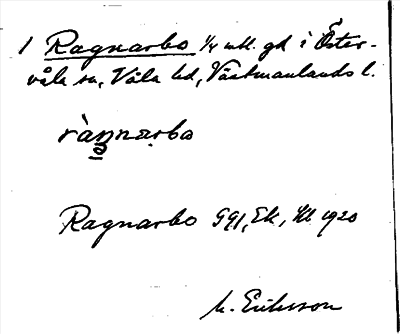 1 Ragnarbo 1/4 mtl. gd i Öster-
våla sn, Våla hd, Västmanlands l.
rànnarba
a
Ragnarbo GGI, Ek, 1920
M. Eriksson